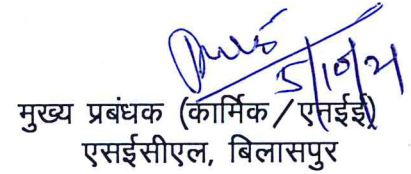 5/10/21
मुख्य प्रबंधक (कार्मिक/एनईई)
एसईसीएल, बिलासपुर